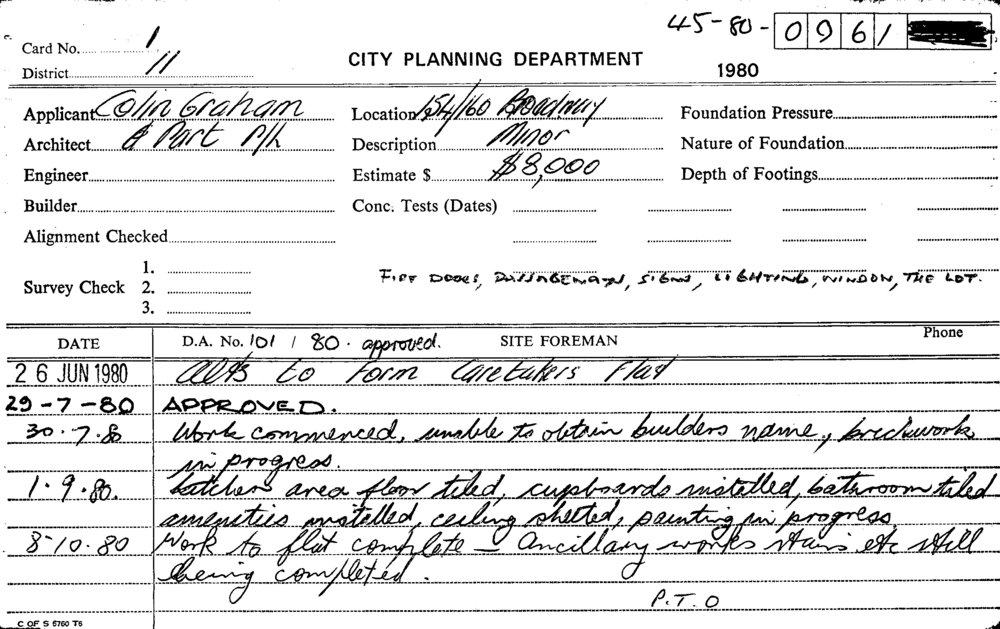 45-80-0961
Card No. 1
District 11
CITY PLANNING DEPARTMENT
1980
Applicant Colin Graham
Architect & Part P/L
Engineer
Builder
Alignment Checked
Survey Check 1.
2.
3.
Location 154/160 Broadway
Description Minor
Estimate $ $8,000
Conc. Tests (Dates)
Foundation Pressure
Nature of Foundation
Depth of Footings
FIRE DOORS, PASSAGEWAYS, SIGNS, LIGHTING, WINDOW, THE LOT.
DATE D.A. No. 101 / 80 . approved. SITE FOREMAN Phone
26 JUN 1980 Alts to Form Caretakers Flat
29-7-80 APPROVED.
30.7.80 Work commenced, unable to obtain builders name, brickwork
in progress.
1.9.80. Kitchen area floor tiled, cupboards installed, bathroom tiled
amenities installed, ceiling sheeted, painting in progress.
8-10.80 Work to flat complete - Ancillary works stairs etc still
being completed.
P.T.O
C OF S 6760 T6